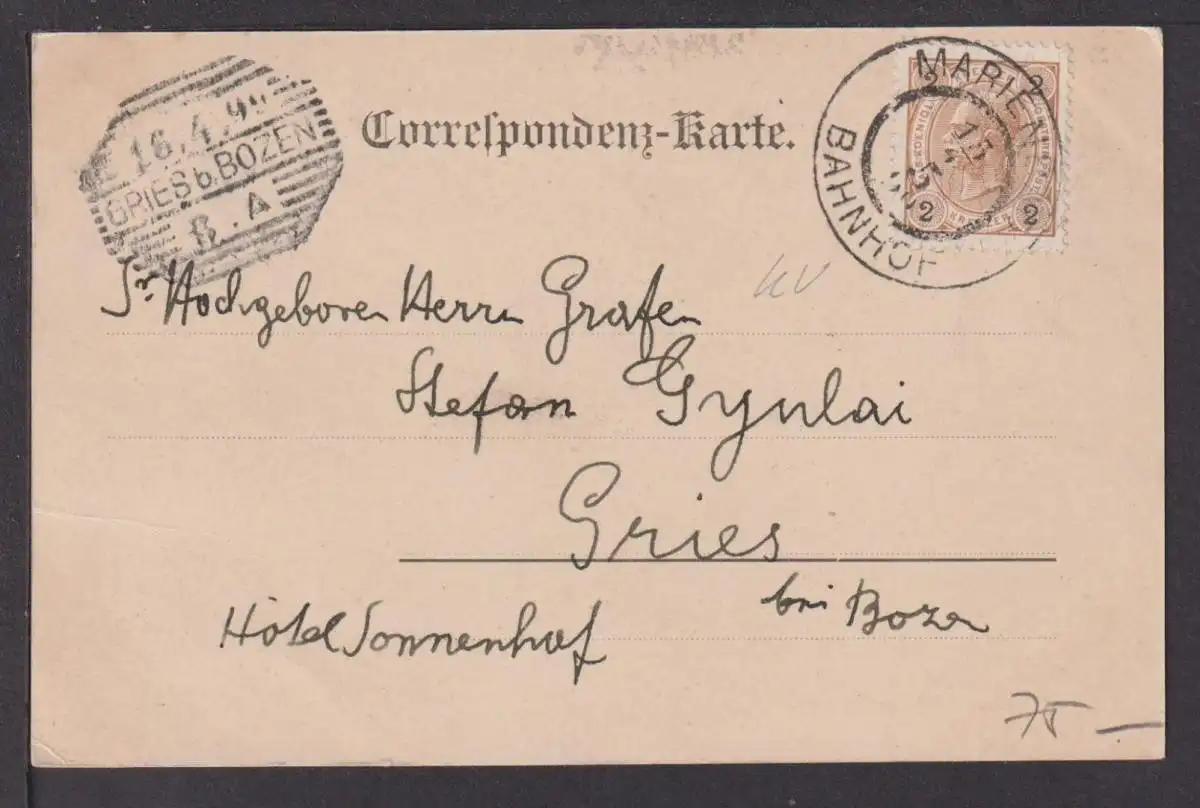 16.4.99
GRIES b. BOZEN
8. A
Correspondenz-Karte.
BAHNHOF
2 2
2 2
Sr. Hochgeboren Herrn Grafen
Stefan Gyulai
Gries
bei Bozen
Hôtel Sonnenhof
75 —